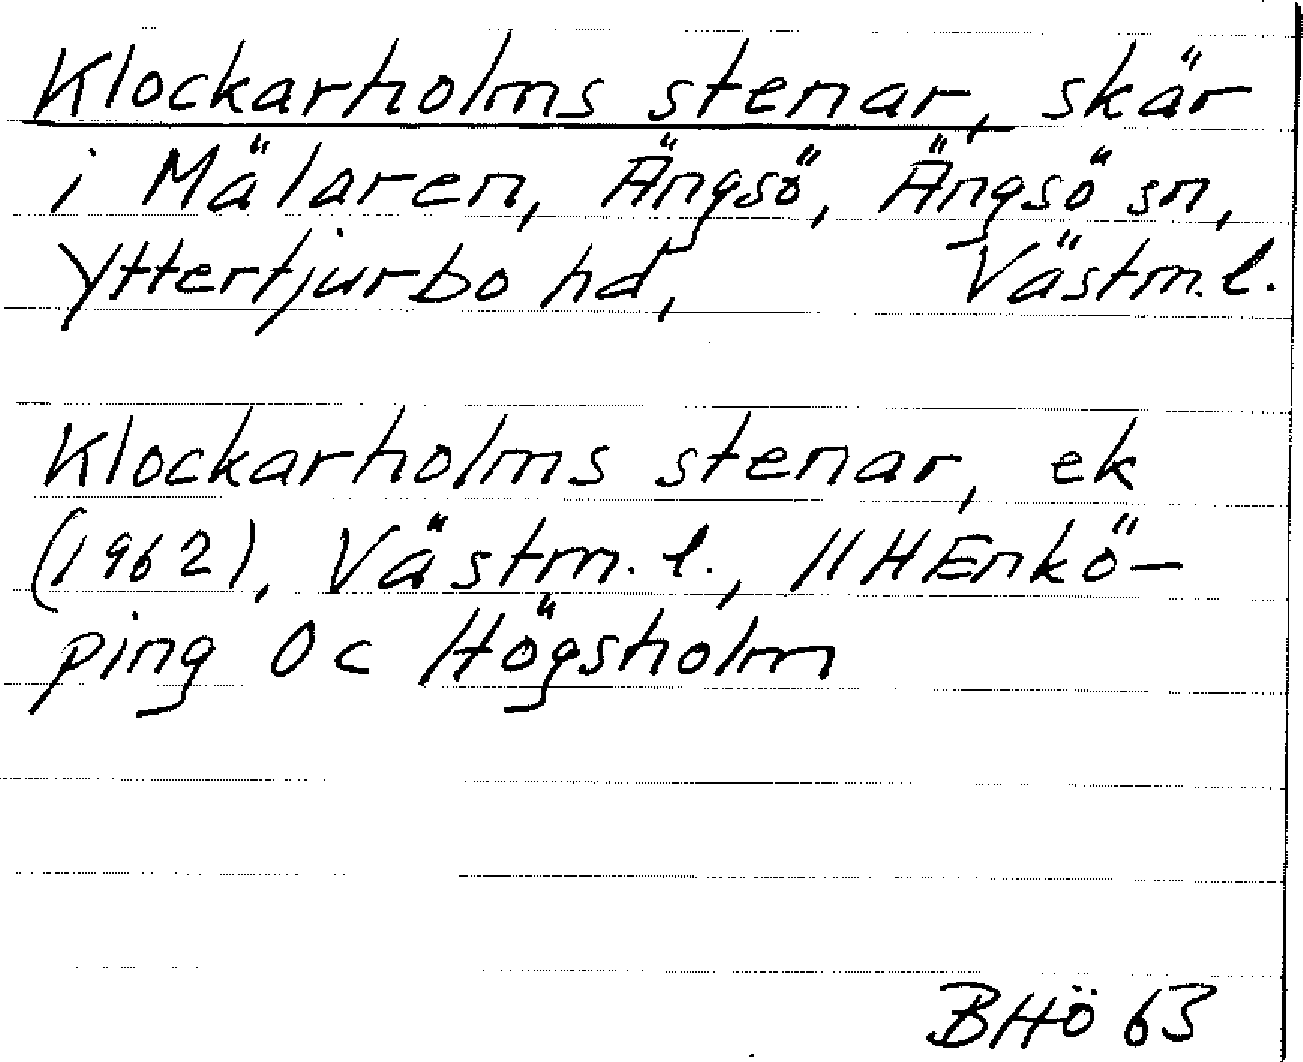 Klockarholms stenar, skär
i Mälaren, Ängsö, Ängsö sn,
Yttertjurbo hd, Västm.l.
Klockarholms stenar, ek
(1962), Västm. l., 11HEnkö-
ping 0c Högsholm
BHö 63